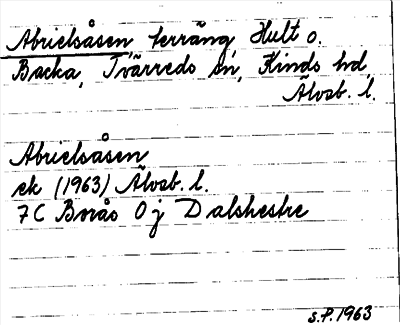 Abrielsåsen, terräng, Hult o.
Backa, Tvärreds sn, Kinds hd
Älvsb. l.
Abrielsåsen
ek (1963) Älvsb. l.
7C Borås 0j Dalshestre
S.P. 1963